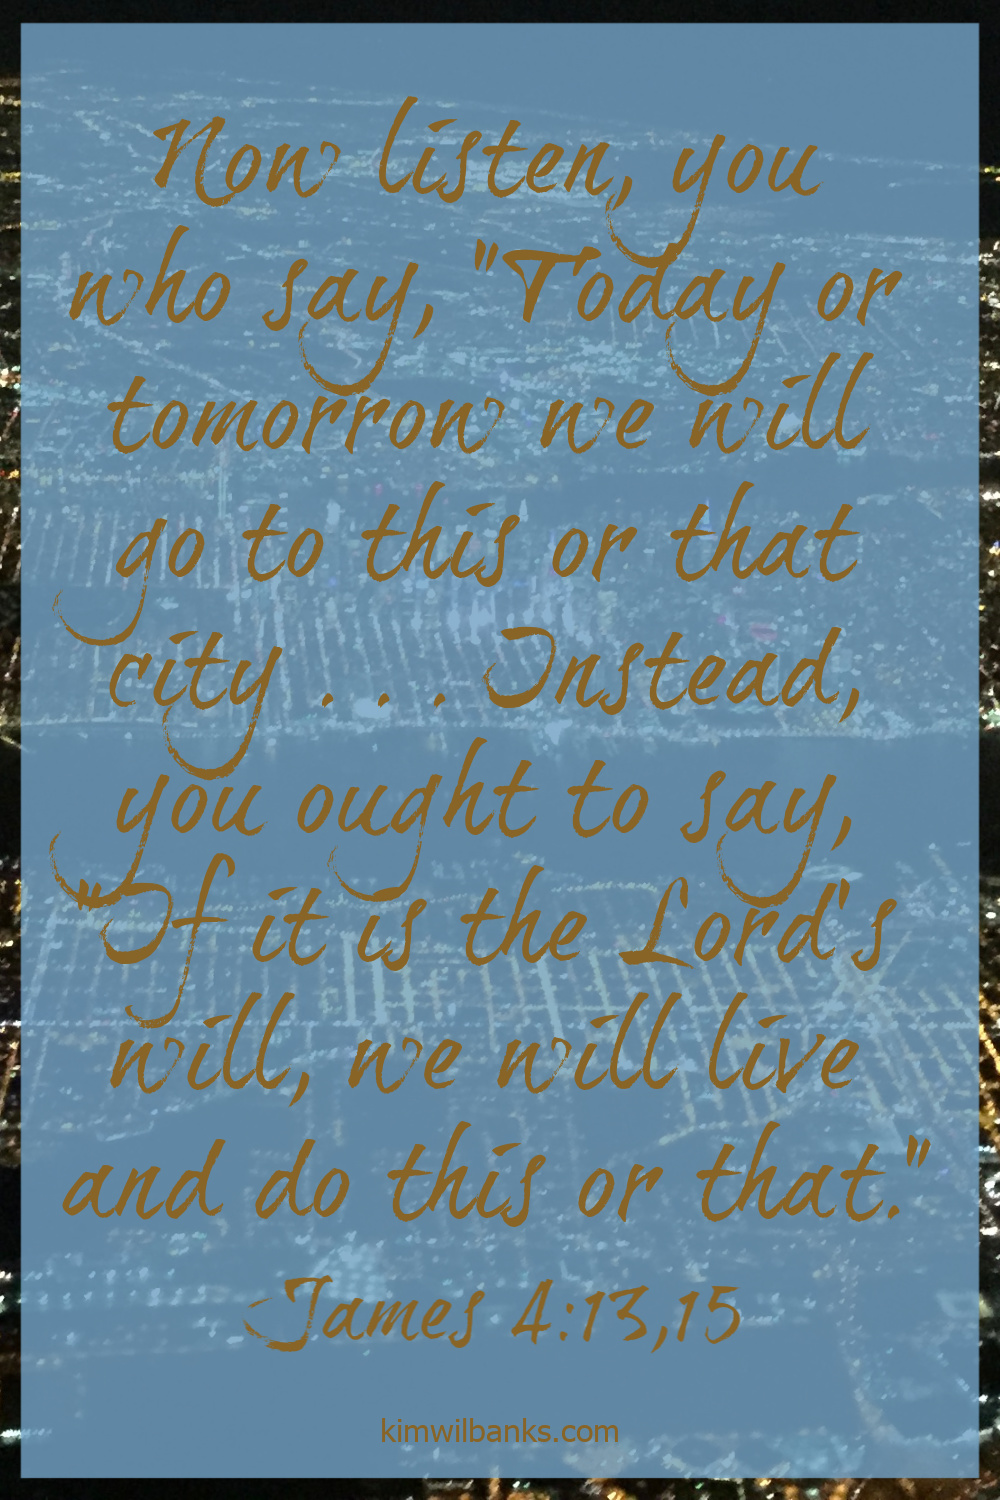 Now listen, you
who say, "Today or
tomorrow we will
go to this or that
city . . . Instead,
you ought to say,
"If it is the Lord's
will, we will live
and do this or that."
James 4:13,15
kimwilbanks.com